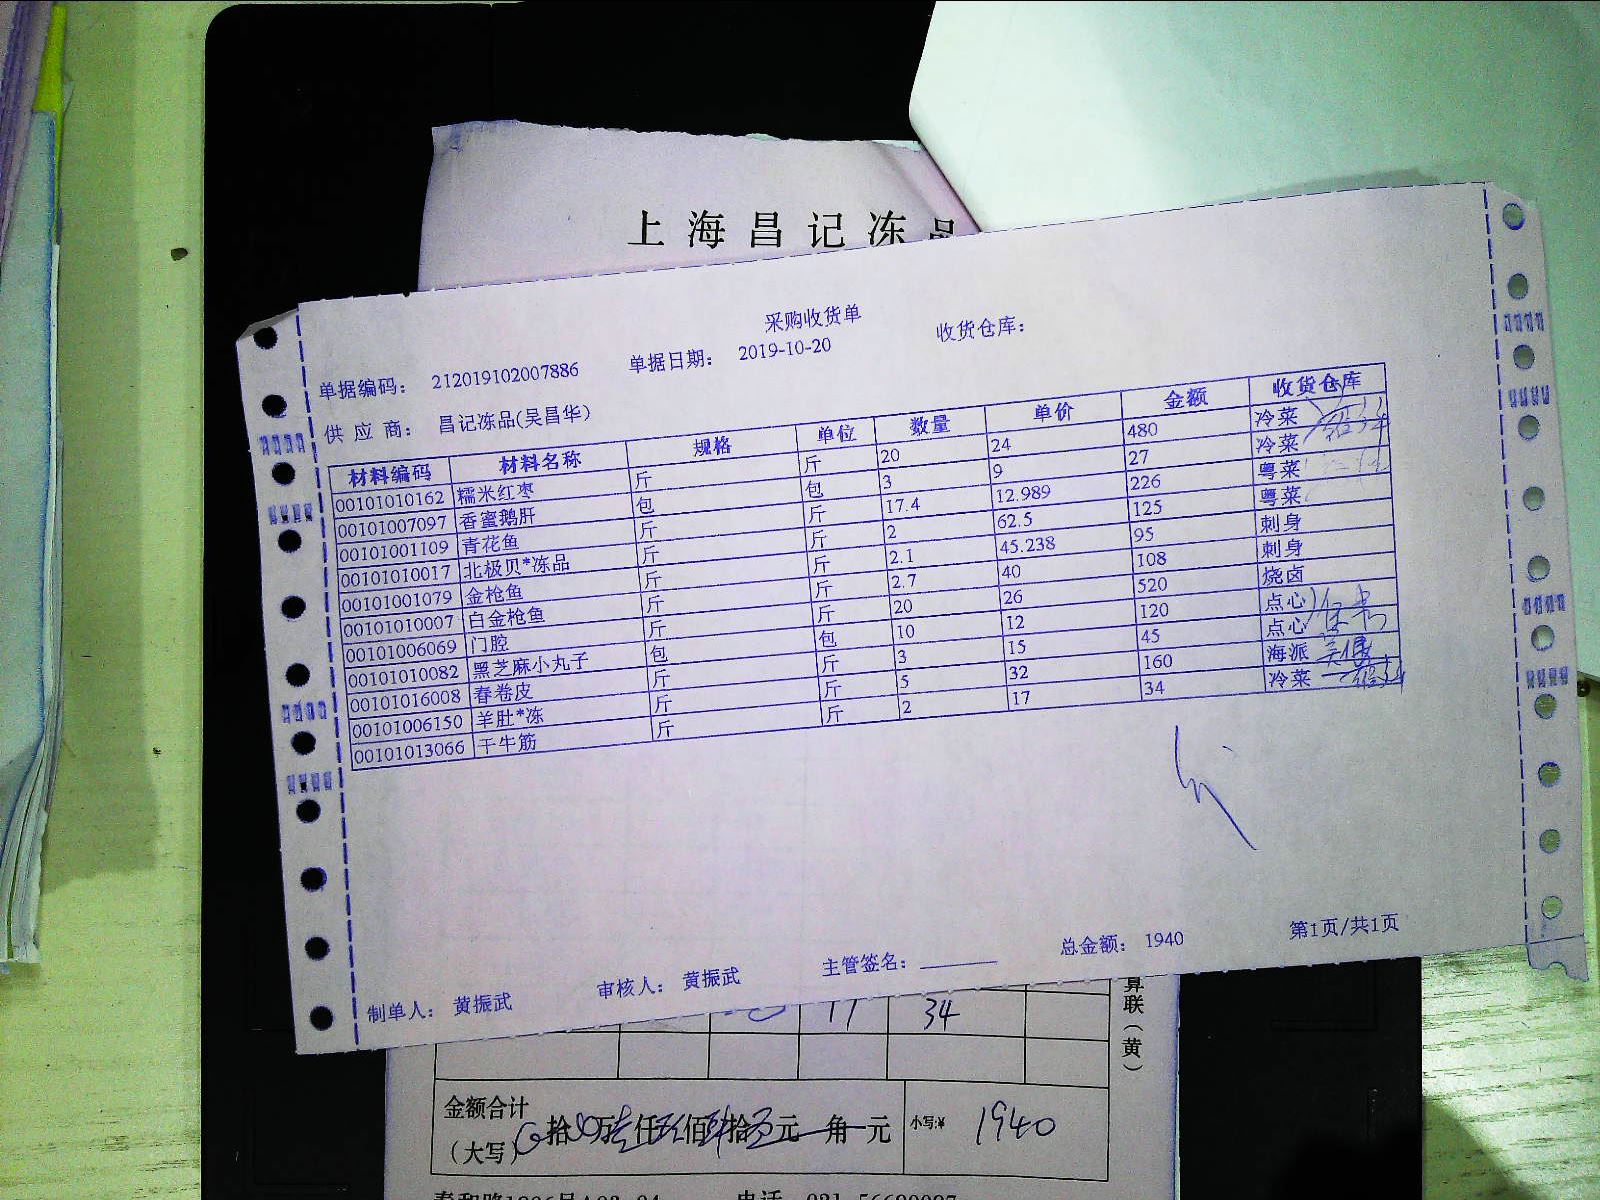 上海昌记冻品
采购收货单
单据编码: 212019102007886 单据日期: 2019-10-20 收货仓库:
供应商: 昌记冻品(吴昌华)
材料编码 材料名称 规格 单位 数量 单价 金额 收货仓库
00101010162 糯米红枣 斤 斤 20 24 480 冷菜
00101007097 香蜜鹅肝 包 包 3 9 27 冷菜
00101001109 青花鱼 斤 斤 17.4 12.989 226 粤菜
00101010017 北极贝*冻品 斤 斤 2 62.5 125 粤菜
00101001079 金枪鱼 斤 斤 2.1 45.238 95 刺身
00101010007 白金枪鱼 斤 斤 2.7 40 108 刺身
00101006069 门腔 斤 斤 20 26 520 烧卤
00101010082 黑芝麻小丸子 包 包 10 12 120 点心
00101016008 春卷皮 斤 斤 3 15 45 点心
00101006150 羊肚*冻 斤 斤 5 32 160 海派
00101013066 干牛筋 斤 斤 2 17 34 冷菜
制单人: 黄振武 审核人: 黄振武 主管签名: 总金额: 1940 第1页/共1页
17 34
算联(黄)
金额合计
(大写) 拾 万 仟 佰 拾 元 角 元 小写:¥ 1940